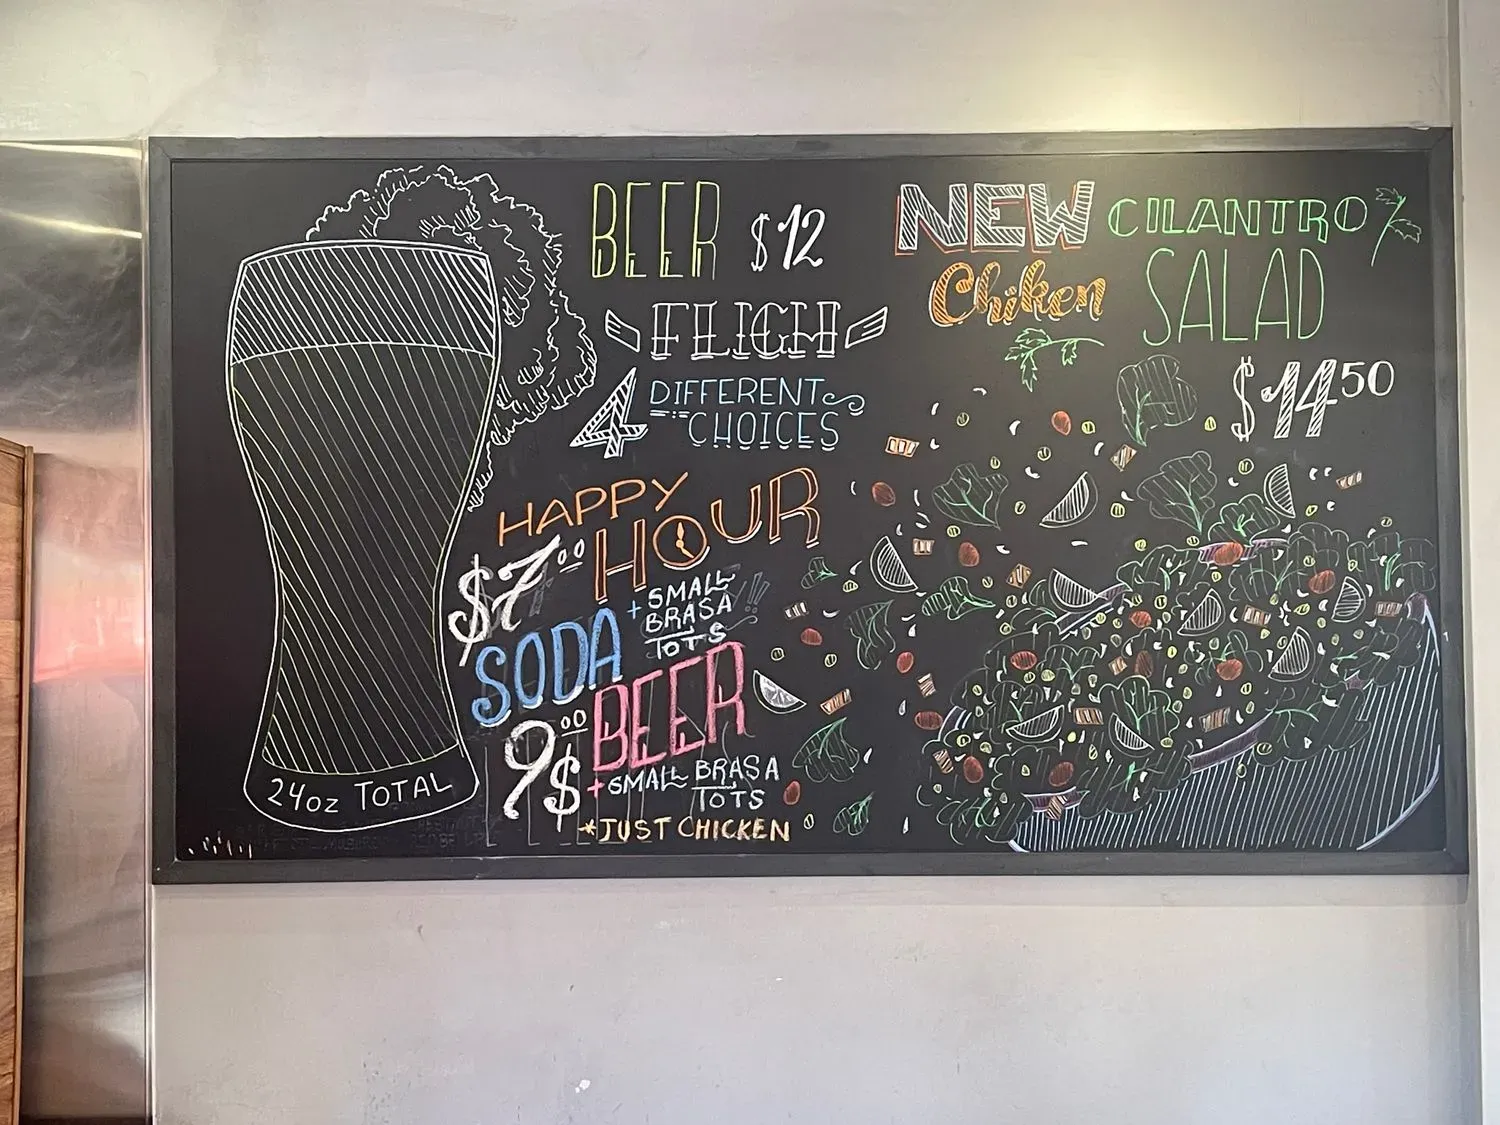 BEER $12
FLIGH
4 DIFFERENT
CHOICES
HAPPY
HOUR
$7.00
SODA
+ SMALL
BRASA
TOTS
9.00$
BEER
+ SMALL BRASA
TOTS
*JUST CHICKEN
24oz TOTAL
NEW CILANTRO
Chiken SALAD
$14.50